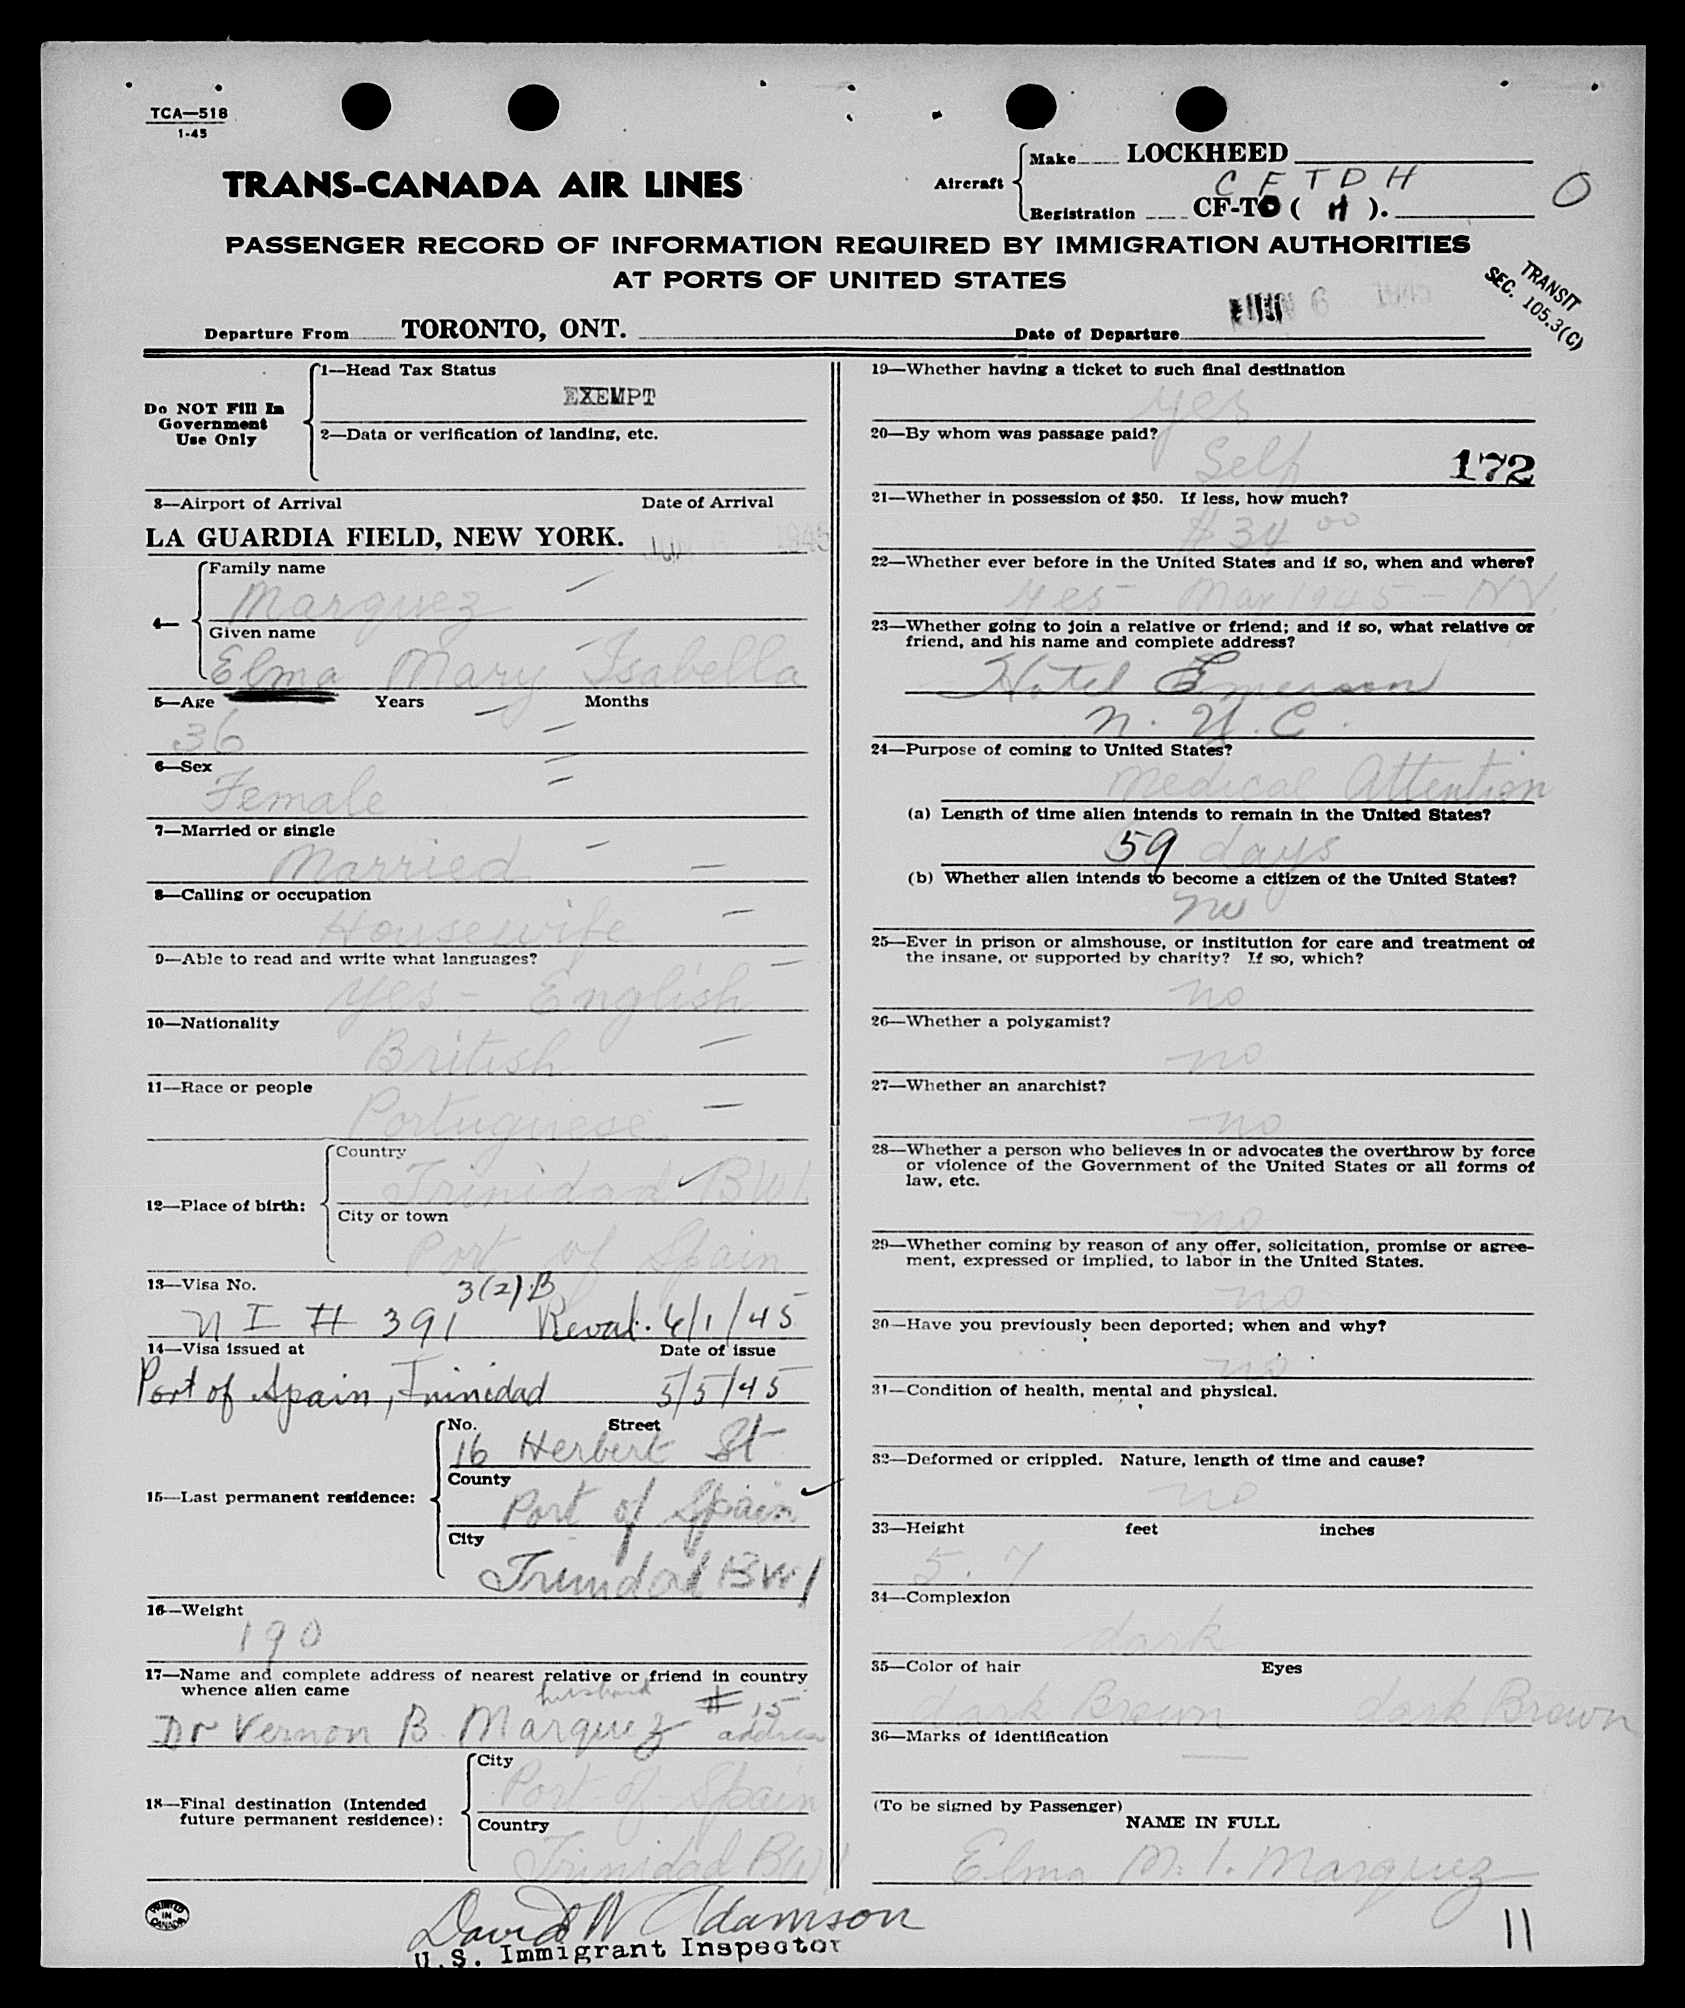 TCA—518
1-45
TRANS-CANADA AIR LINES
Aircraft
Make LOCKHEED
C F T D H
Registration CF-TO ( H ).
O
PASSENGER RECORD OF INFORMATION REQUIRED BY IMMIGRATION AUTHORITIES
AT PORTS OF UNITED STATES
TRANSIT
SEC. 105.3(C)
Departure From TORONTO, ONT. Date of Departure JUN 6 1945
Do NOT Fill In
Government
Use Only
1—Head Tax Status
EXEMPT
2—Data or verification of landing, etc.
3—Airport of Arrival Date of Arrival
LA GUARDIA FIELD, NEW YORK. JUN 6 1945
4—
Family name
Marquez
Given name
Elma Mary Isabella
5—Age Years Months
36
6—Sex
Female
7—Married or single
Married
8—Calling or occupation
Housewife
9—Able to read and write what languages?
Yes - English
10—Nationality
British
11—Race or people
Portuguese
12—Place of birth:
Country
Trinidad BWI
City or town
Port of Spain
13—Visa No. 3(2)B
N I # 391 Reval. 6/1/45
14—Visa issued at Date of issue
Port of Spain, Trinidad 5/5/45
15—Last permanent residence:
No. Street
16 Herbert St
County
Port of Spain
City
Trinidad BWI
16—Weight
190
17—Name and complete address of nearest relative or friend in country
whence alien came
husband # 15
Dr Vernon B. Marquez address
18—Final destination (Intended
future permanent residence):
City
Port of Spain
Country
Trinidad BWI
19—Whether having a ticket to such final destination
yes
20—By whom was passage paid?
Self 172
21—Whether in possession of $50. If less, how much?
# 34 00
22—Whether ever before in the United States and if so, when and where?
yes - May 1945 - NY.
23—Whether going to join a relative or friend; and if so, what relative or
friend, and his name and complete address?
Hotel Emerson
N. Y. C.
24—Purpose of coming to United States?
Medical Attention
(a) Length of time alien intends to remain in the United States?
59 days
(b) Whether alien intends to become a citizen of the United States?
no
25—Ever in prison or almshouse, or institution for care and treatment of
the insane, or supported by charity? If so, which?
no
26—Whether a polygamist?
no
27—Whether an anarchist?
no
28—Whether a person who believes in or advocates the overthrow by force
or violence of the Government of the United States or all forms of
law, etc.
no
29—Whether coming by reason of any offer, solicitation, promise or agree-
ment, expressed or implied, to labor in the United States.
no
30—Have you previously been deported; when and why?
no
31—Condition of health, mental and physical.
32—Deformed or crippled. Nature, length of time and cause?
no
33—Height feet inches
5. 7
34—Complexion
dark
35—Color of hair Eyes
dark Brown dark Brown
36—Marks of identification
(To be signed by Passenger)
NAME IN FULL
Elma M. I. Marquez
PRINTED
IN
CANADA
David W Adamson
U.S. Immigrant Inspector
11